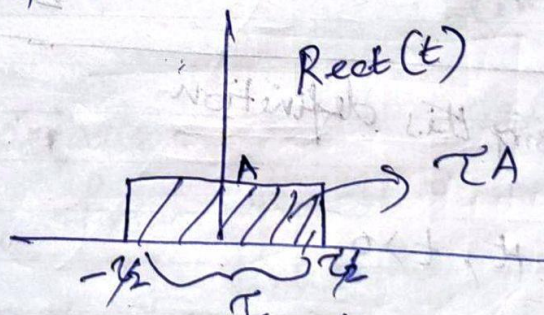 Rect(t)
A
τA
-τ/2
τ/2
τ